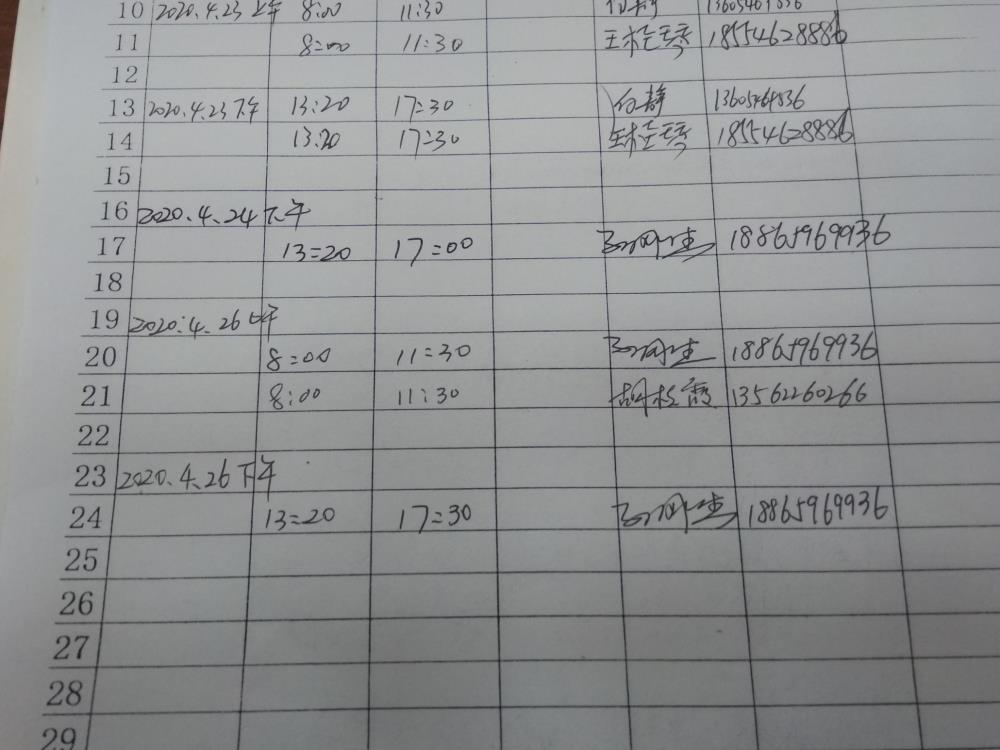 10 2020.4.23 上午 8:00 11:30
11 8:00 11:30 18554628886
12
13 2020.4.23下午 13:20 17:30 白静 13605464836
14 13:20 17:30 18554628886
15
16 2020.4.24下午
17 13:20 17:00 18865969936
18
19 2020.4.26上午
20 8:00 11:30 18865969936
21 8:00 11:30 胡松霞 13562260266
22
23 2020.4.26下午
24 13:20 17:30 18865969936
25
26
27
28
29